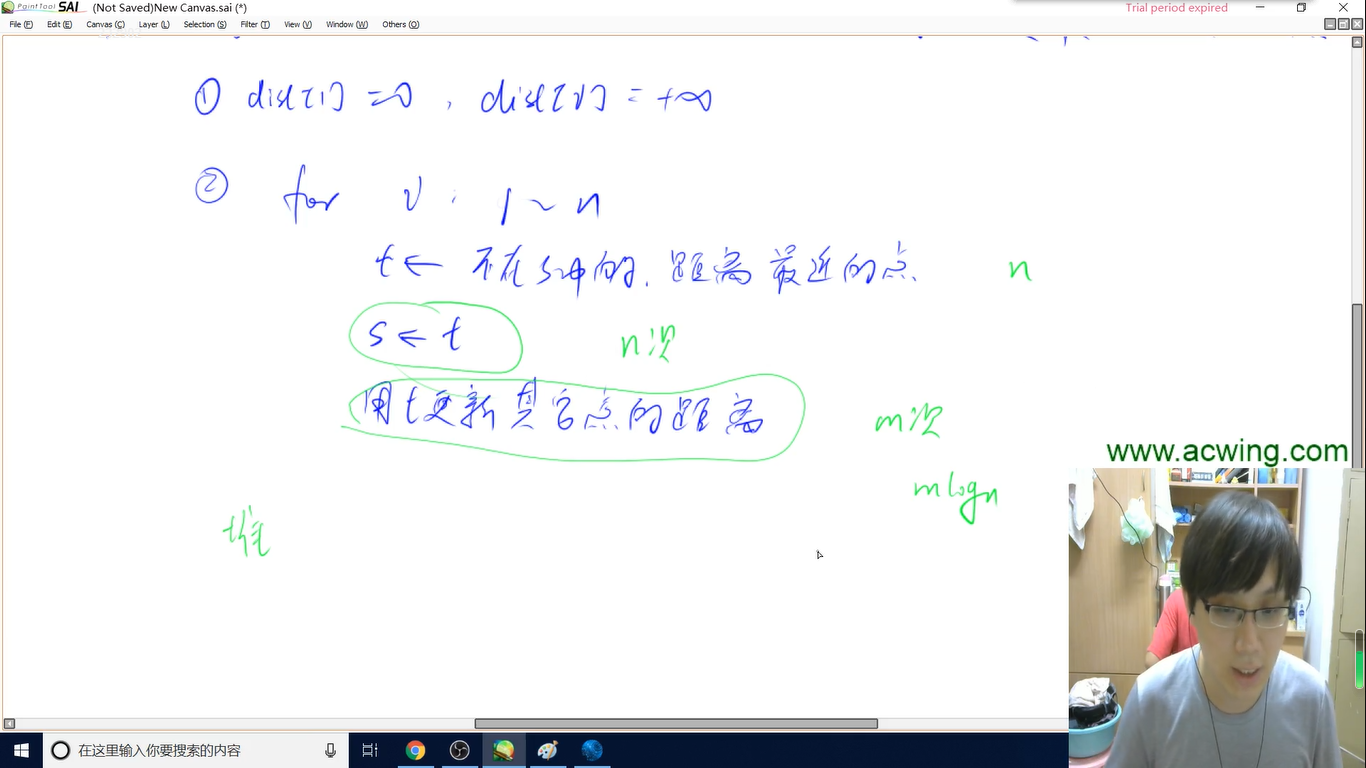 PaintTool SAI (Not Saved)New Canvas.sai (*)
Trial period expired
File (F) Edit (E) Canvas (C) Layer (L) Selection (S) Filter (T) View (V) Window (W) Others (O)
① dist[1] = 0, dist[v] = +∞
② for v: 1~n
t ← 不在s中的.距离最近的点 n
s ← t n次
用t更新其它点的距离 m次
www.acwing.com
mlogn
堆
在这里输入你要搜索的内容